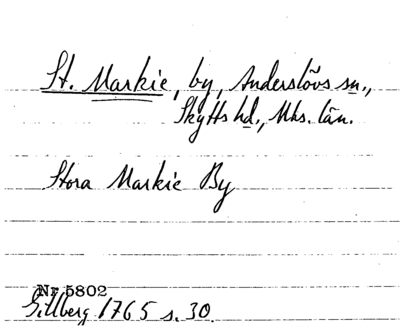 St. Markie, by, Anderslövs sn.,
Skytts hd., Mhs. län.
Stora Markie By
Nr 5802
Gillberg 1765 s. 30.